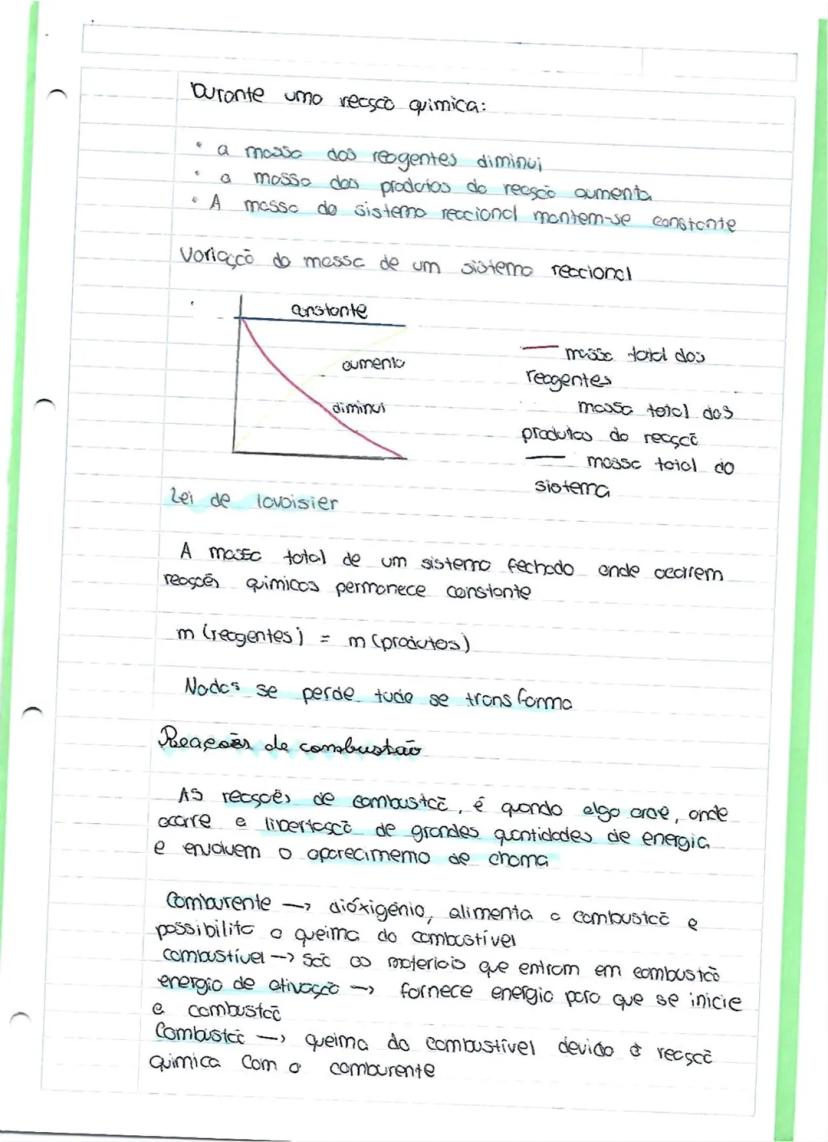 Durante uma reacção quimica:
• a massa dos reagentes diminui
• a massa dos produtos da reacção aumenta
• A massa do sistema reaccional mantem-se constante
Variação da massa de um sistema reaccional
constante
aumenta
diminui
massa total dos
reagentes
massa total dos
produtos da reacção
massa total do
sistema
Lei de lavoisier
A massa total de um sistema fechado onde ocorrem
reações quimicas permanece constante
m (reagentes) = m (produtos)
Nadas se perde tudo se transforma
Reações de combustão
As reacções de combustão, é quando algo arde, onde
ocorre a libertação de grandes quantidades de energia
e envolvem o aparecimento de chama
Comburente → dióxigénio, alimenta a combustão e
possibilita a queima do combustível
combustível → são os materiais que entram em combustão
energia de ativação → fornece energia para que se inicie
a combustão
Combustão → queima do combustível devido à reacção
quimica com o comburente